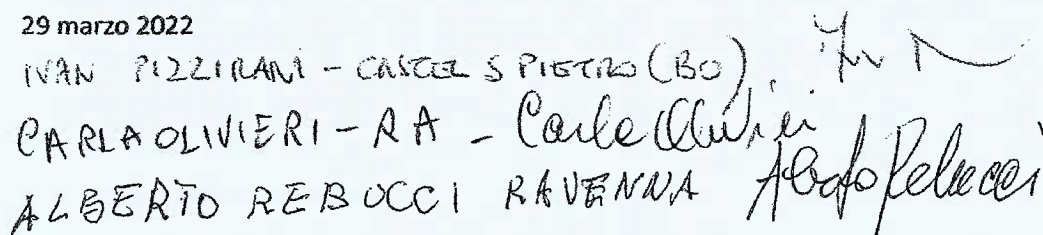 29 marzo 2022
IVAN PIZZIRANI - CASTEL S PIETRO (BO)
CARLA OLIVIERI - RA - Carla Olivieri
ALBERTO REBUCCI RAVENNA Alberto Rebucci